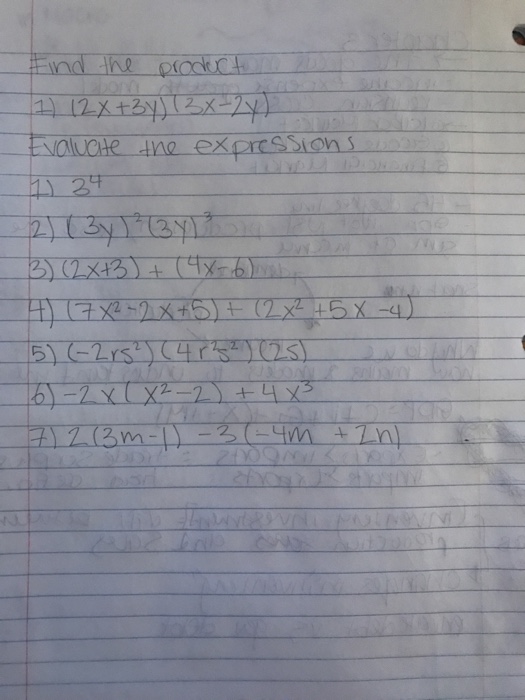 Find the product
1) (2x+3y)(3x-2y)
Evaluate the expressions
1) 3⁴
2) (3y)²(3y)³
3) (2x+3) + (4x-6)
4) (7x²-2x+5) + (2x²+5x-4)
5) (-2rs²)(4r²s²)(2s)
6) -2x(x²-2) + 4x³
7) 2(3m-1) -3(-4m + 2n)